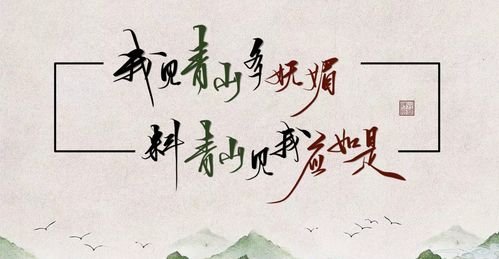 我见青山多妩媚
料青山见我应如是